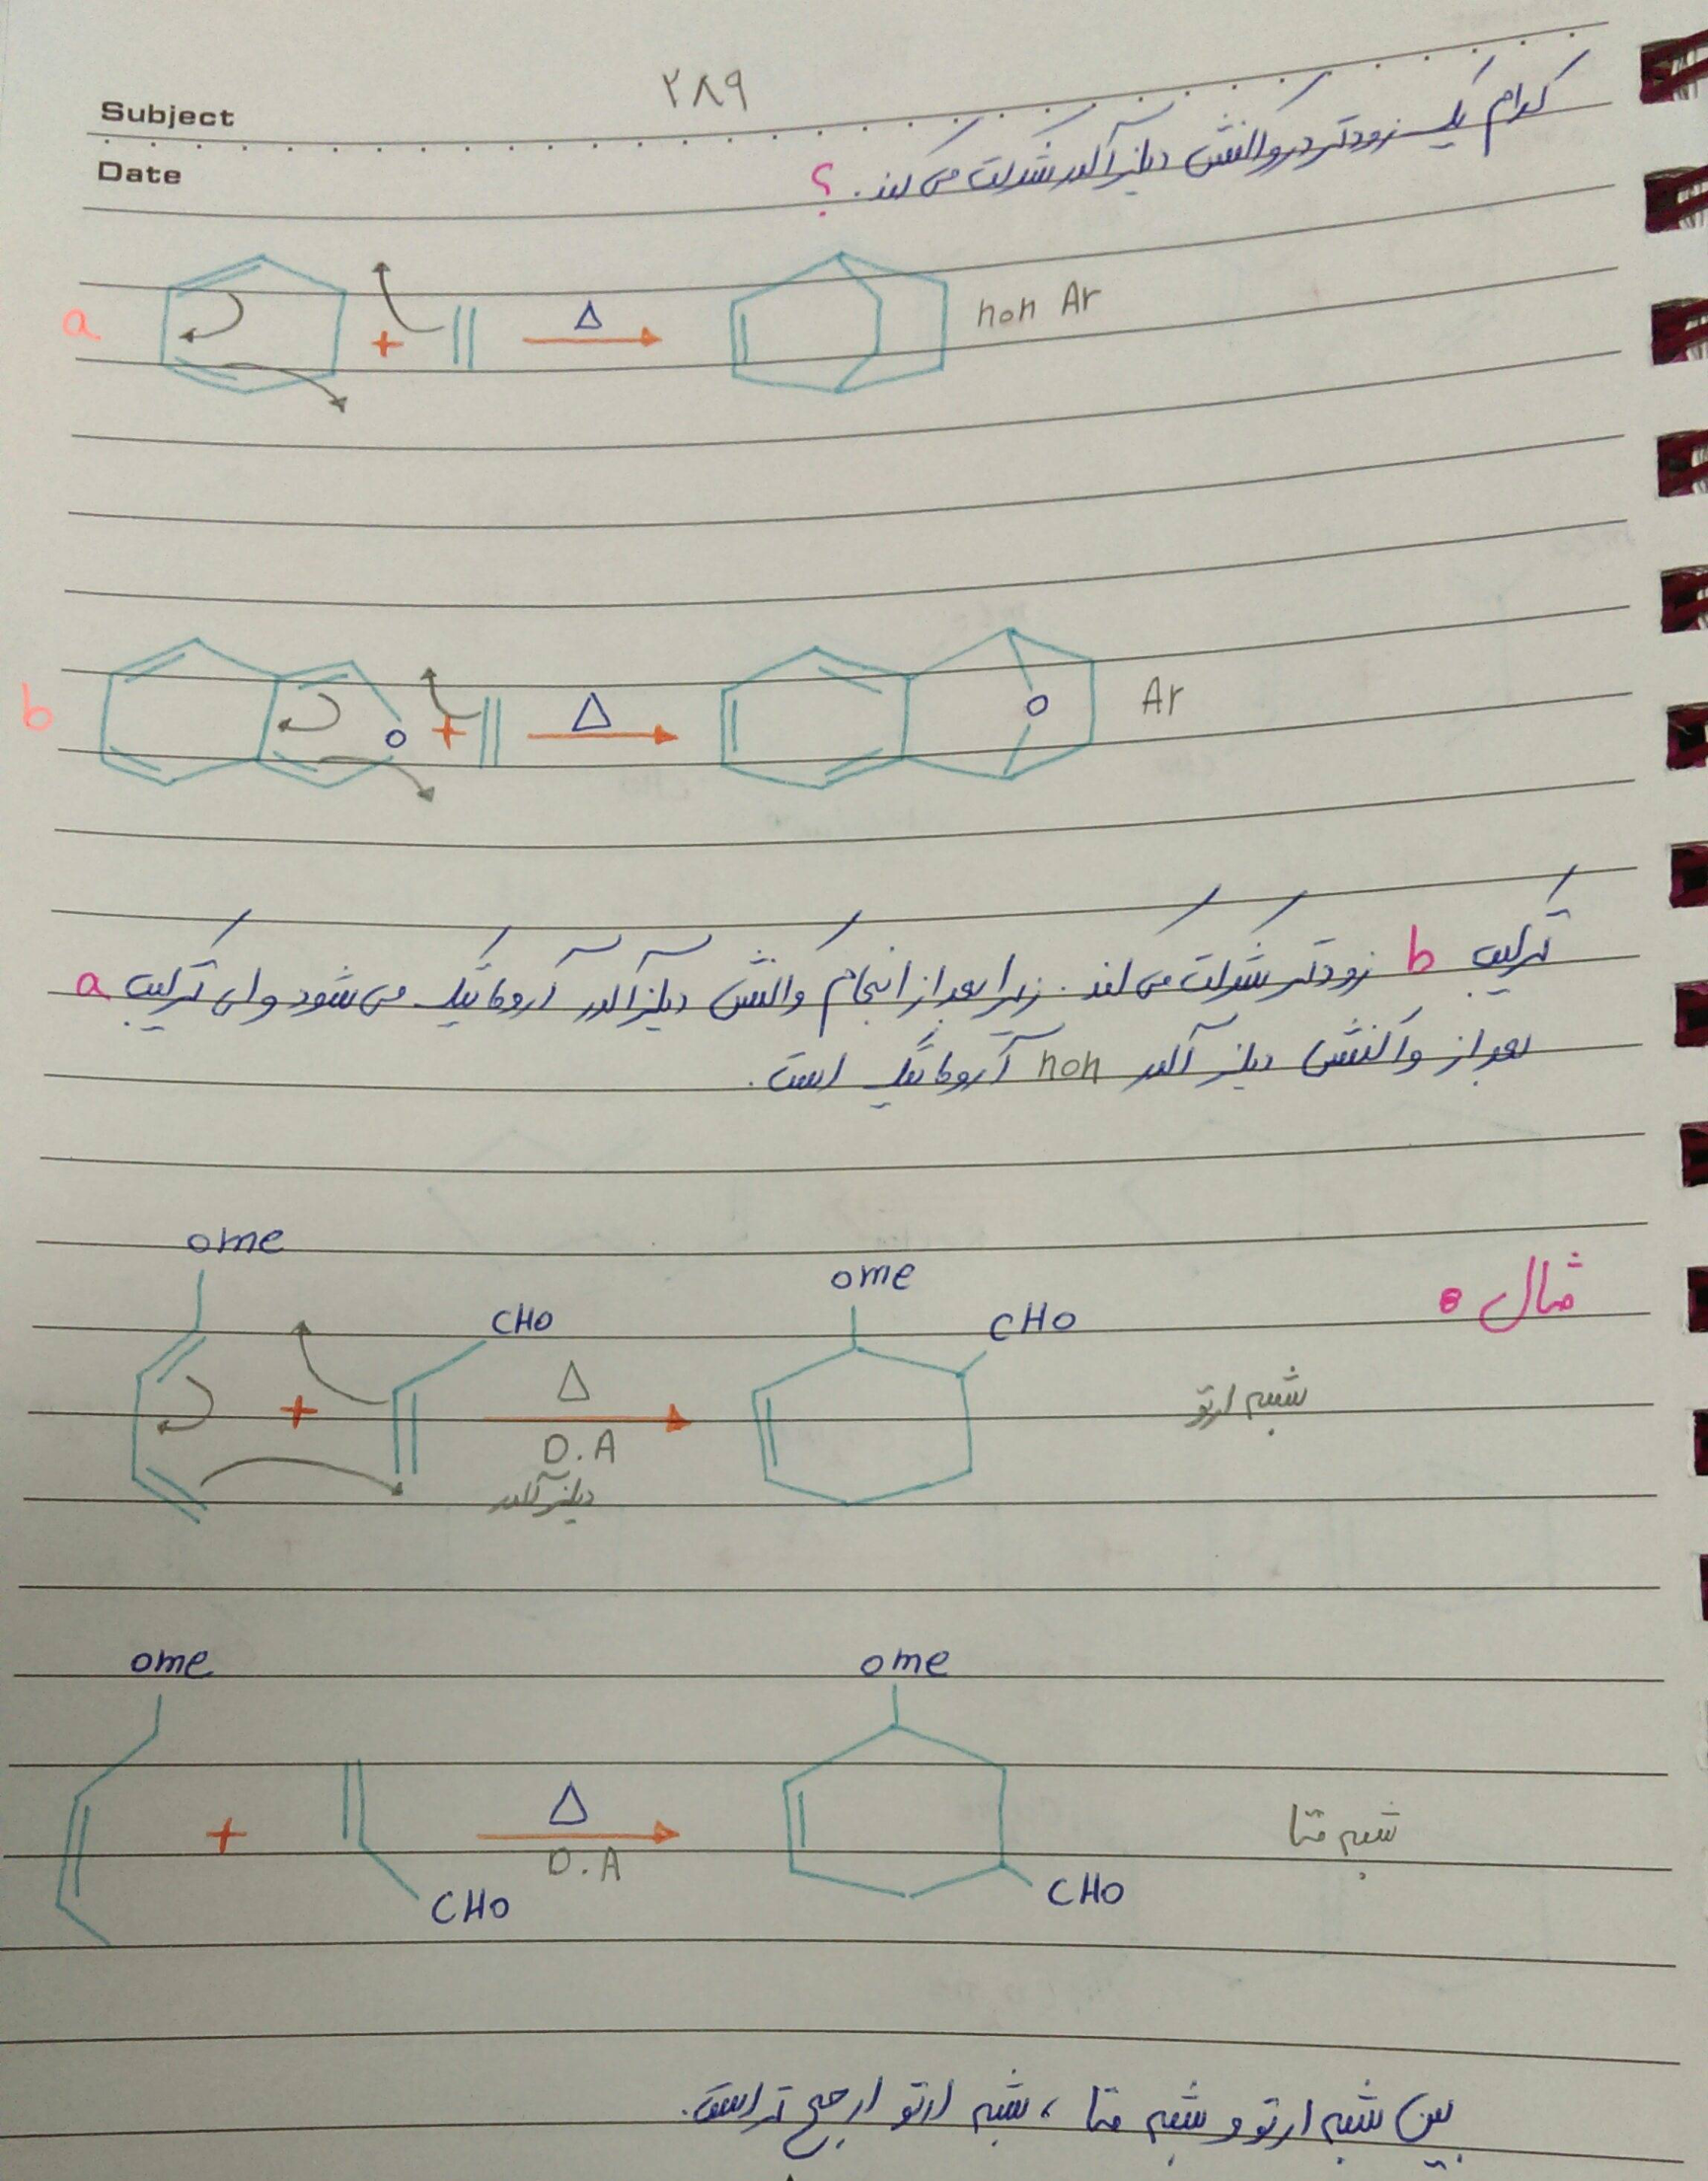 ۲۸۹
Subject
Date
کدام یک زودتر در واکنش دیلز آلدر شرکت می کند. ؟
a + Δ non Ar
b O + Δ O Ar
ترکیب b زودتر شرکت می کند. زیرا بعد از انجام واکنش دیلز آلدر آروماتیک می شود ولی ترکیب a
بعد از واکنش دیلز آلدر non آروماتیک است.
مثال:
ome ome
CHO CHO
+ Δ شبه ارتو
D.A
دیلز آلدر
ome ome
+ Δ شبه متا
D.A
CHO CHO
بین شبه ارتو و شبه متا ، شبه ارتو ارجح تر است.